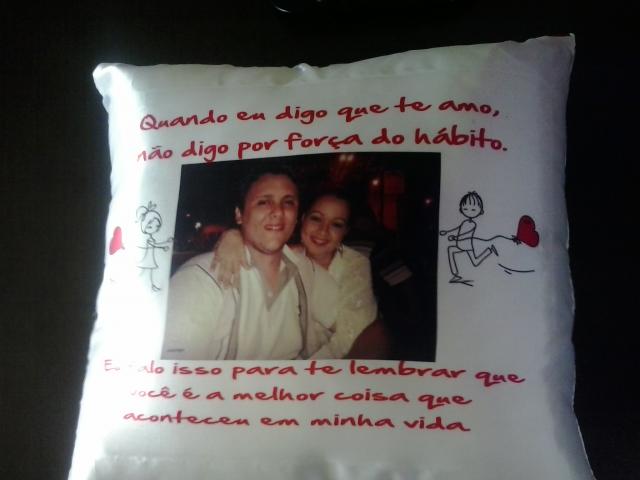 Quando eu digo que te amo,
não digo por força do hábito.
Eu falo isso para te lembrar que
você é a melhor coisa que
aconteceu em minha vida